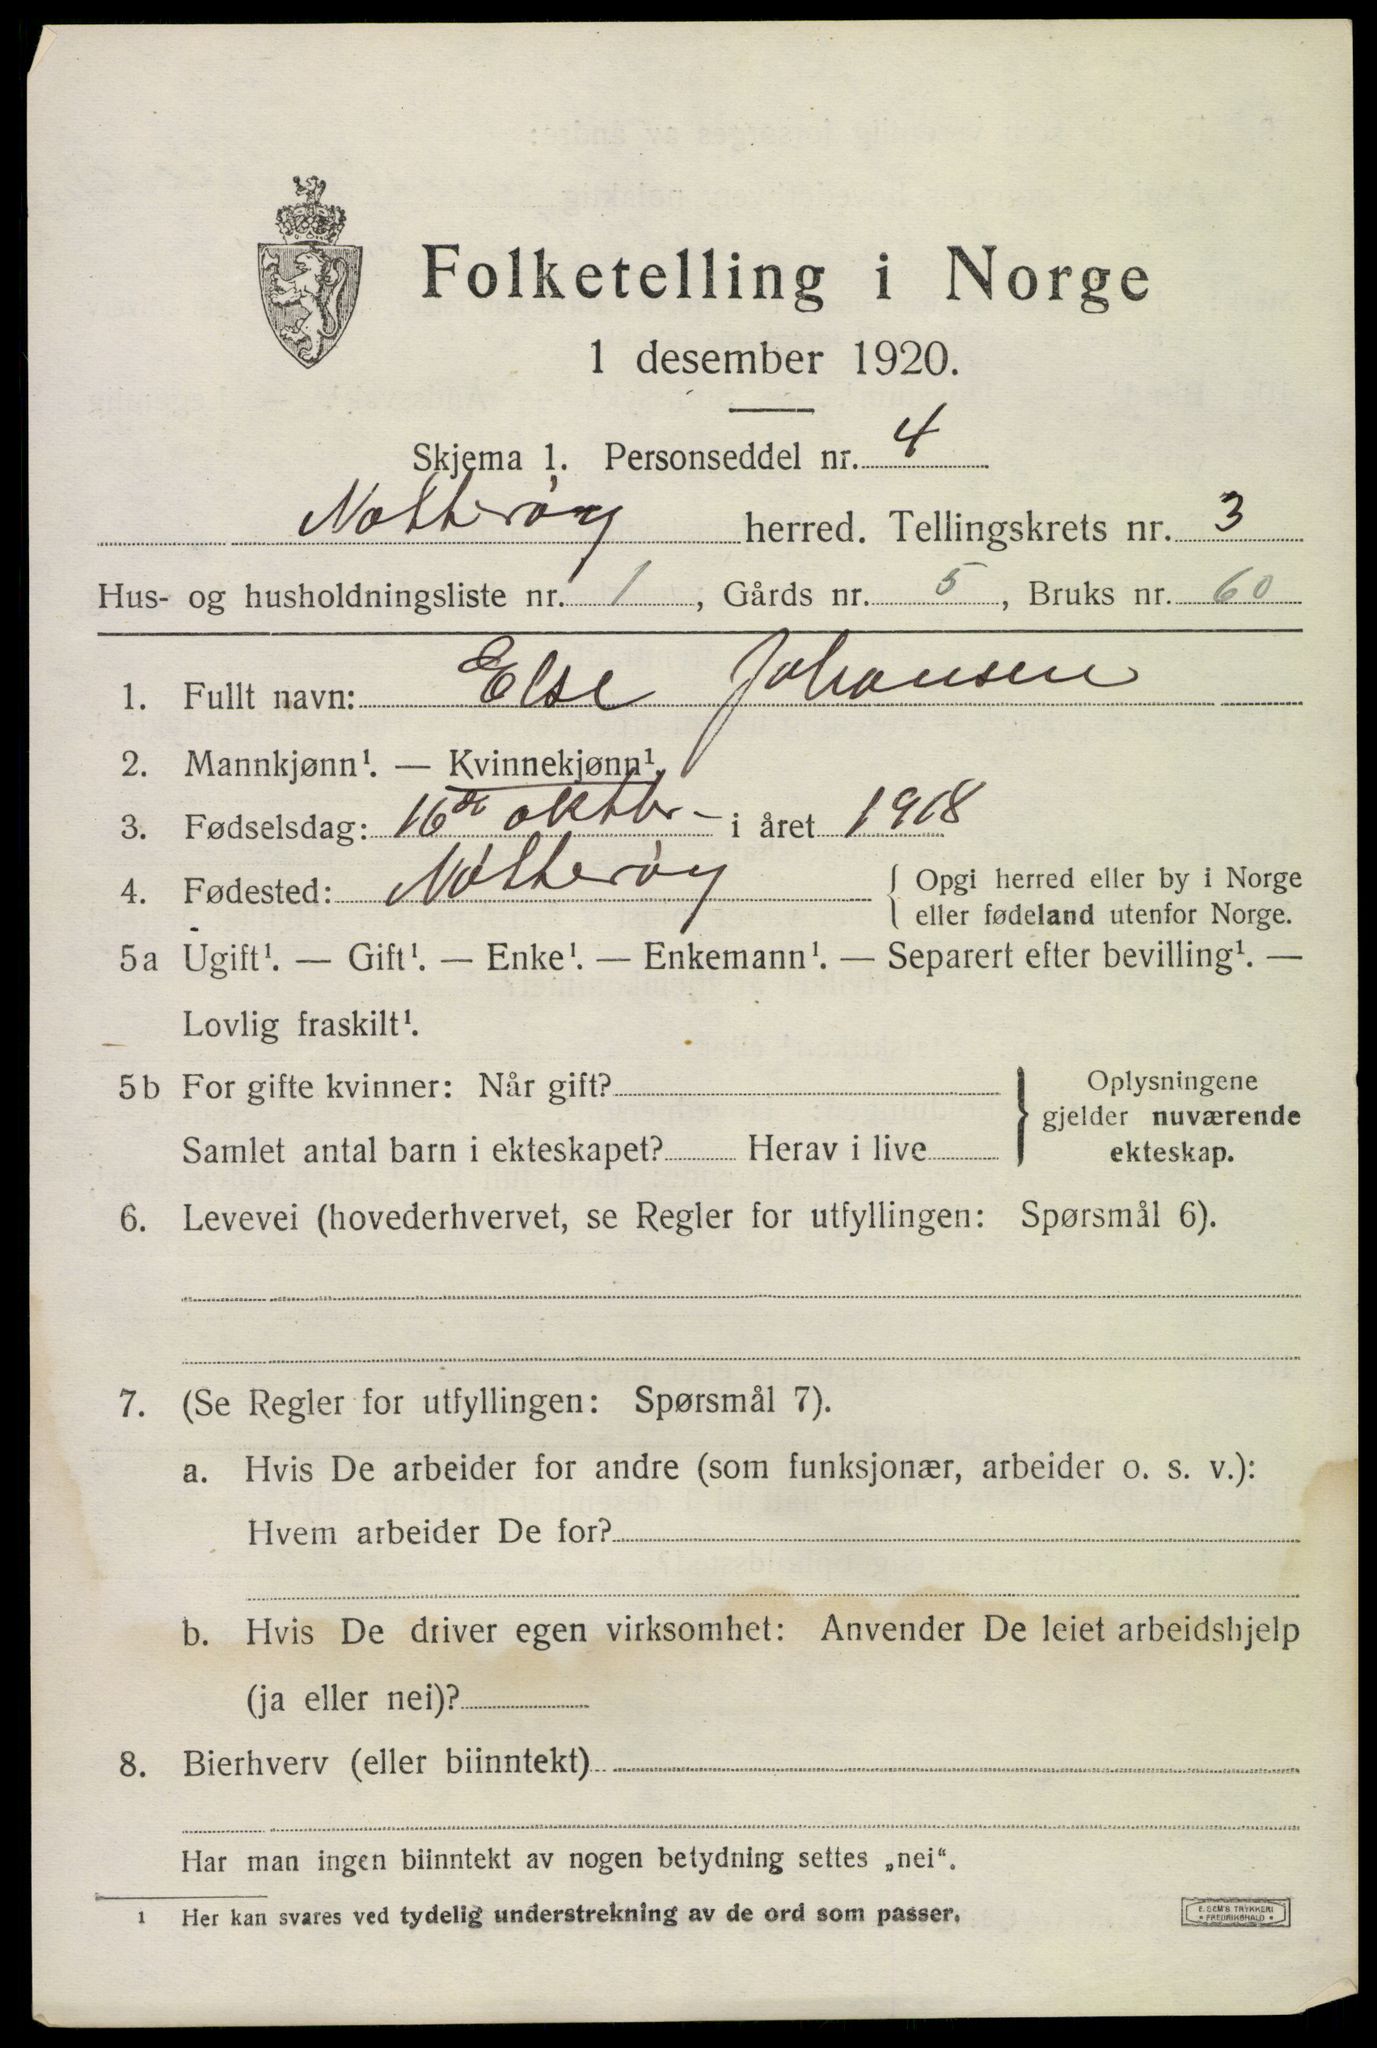 Folketelling i Norge
1 desember 1920.
Skjema 1. Personseddel nr. 4
Nøtterøy herred. Tellingskrets nr. 3
Hus- og husholdningsliste nr. 1, Gårds nr. 5, Bruks nr. 60
1. Fullt navn: Else Johansen
2. Mannkjønn¹. — Kvinnekjønn¹.
3. Fødselsdag: 16de oktbr – i året 1918
4. Fødested: Nøtterøy { Opgi herred eller by i Norge
eller fødeland utenfor Norge.
5a Ugift¹. — Gift¹. — Enke¹. — Enkemann¹. — Separert efter bevilling¹. —
Lovlig fraskilt¹.
5b For gifte kvinner: Når gift? } Oplysningene
gjelder nuværende
Samlet antal barn i ekteskapet? Herav i live ekteskap.
6. Levevei (hovederhvervet, se Regler for utfyllingen: Spørsmål 6).
7. (Se Regler for utfyllingen: Spørsmål 7).
a. Hvis De arbeider for andre (som funksjonær, arbeider o. s. v.):
Hvem arbeider De for?
b. Hvis De driver egen virksomhet: Anvender De leiet arbeidshjelp
(ja eller nei)?
8. Bierhverv (eller biinntekt)
Har man ingen biinntekt av nogen betydning settes „nei“.
1 Her kan svares ved tydelig understrekning av de ord som passer.
E. SEM'S TRYKKERI
• FREDRIKSHALD •